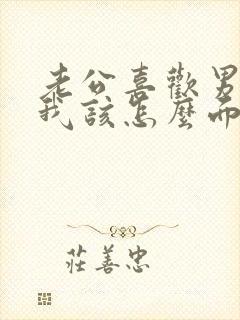 老公喜歡男
我該怎麼而
莊善忠